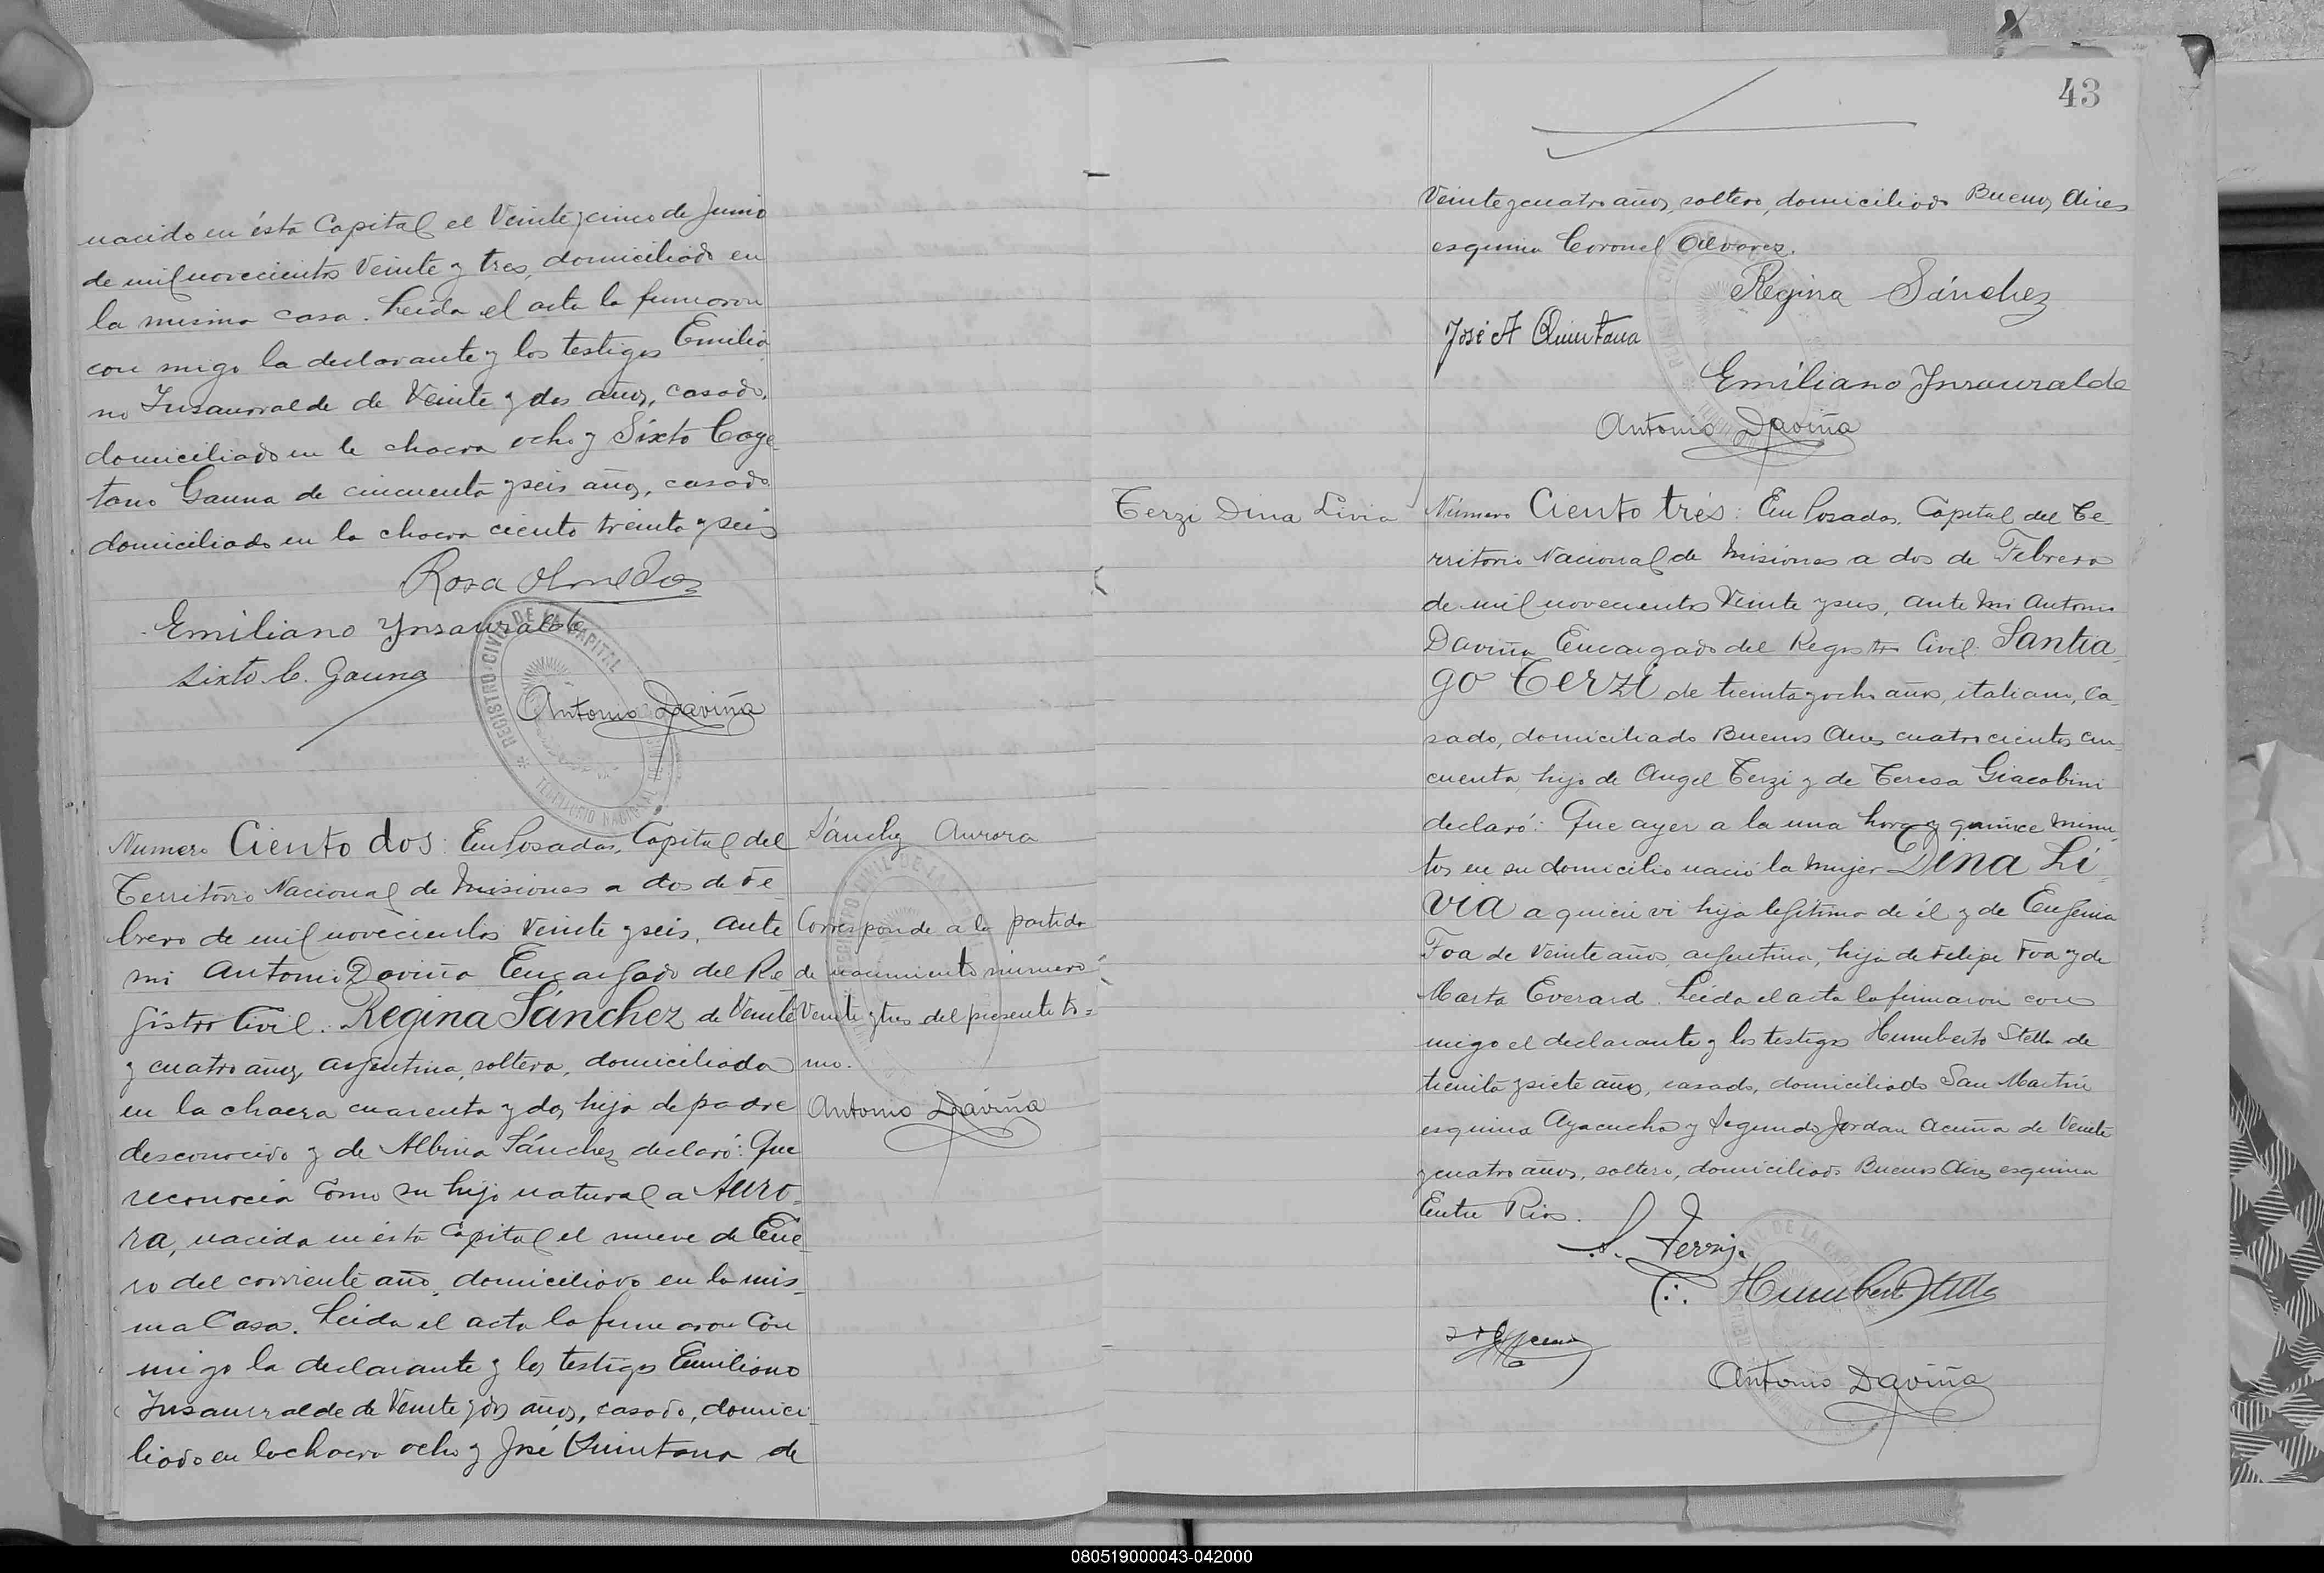 nacido en ésta Capital el Veinte y cinco de Junio
de mil novecientos Veinte y tres, domiciliado en
la misma casa. Leida el acta la firmaron
con migo la declarante y los testigos Emilia
no Insaurralde de Veinte y dos años, casado,
domiciliado en la chacra ocho y Sixto Caye
tano Gauna de cincuenta y seis años, casado
domiciliado en la chacra ciento treinta y seis
Rosa Olmedo
Emiliano Ynsauralde
Sixto C. Gauna
REGISTRO CIVIL DE LA CAPITAL
TERRITORIO NACIONAL
Antonio Daviña
Numero Ciento dos: En Posadas, Capital del
Territorio Nacional de Misiones a dos de Fe
brero de mil novecientos Veinte y seis, ante
mi Antonio Daviña Encargado del Re
gistro Civil. Regina Sánchez de Veinte
y cuatro años, argentina, soltera, domiciliada
en la chacra cuarenta y dos, hija de padre
desconocido y de Albina Sánchez declaró: Que
reconocia como su hijo natural a Auro-
ra, nacida en ésta Capital el nueve de Ene
ro del corriente año, domiciliado en la mis
ma Casa. Leida el acta la firmaron Con
migo la declarante y los testigos Emiliano
Insaurralde de Veinte y dos años, casado, domici
liado en la chacra ocho y José Quintana de
Sánchez Aurora
Corresponde a la partida
de nacimiento número
Veinte y tres del presente to=
mo.
Antonio Daviña
43
Veinte y cuatro años, soltero, domiciliado Buenos Aires
esquina Coronel Alvarez.
Regina Sánchez
José A Quintana
Emiliano Ynsauralde
Antonio Daviña
Terzi Dina Livia
Número Ciento trés: En Posadas, Capital del Te
rritorio Nacional de Misiones a dos de Febrero
de mil novecientos Veinte y seis, ante mi Antonio
Daviña Encargado del Registro Civil: Santia
go Terzi de treinta y ocho años, italiano, ca
sado, domiciliado Buenos Aires cuatrocientos cin
cuenta, hijo de Angel Terzi y de Teresa Giacobini
declaró: Que ayer a la una hora y quince minu
tos en su domicilio nació la mujer Dina Li
via a quien vi hija legítima de él y de Eugenia
Foa de Veinte años, argentina, hija de Felipe Foa y de
Marta Everard. Leida el acta la firmaron con
migo el declarante y los testigos Humberto Stella de
treinta y siete años, casado, domiciliado San Martín
esquina Ayacucho y Segundo Jordan Acuña de Veinte
y cuatro años, soltero, domiciliado Buenos Aires esquina
Entre Rios.
S. Terzi
Humberto Stella
Antonio Daviña
080519000043-042000